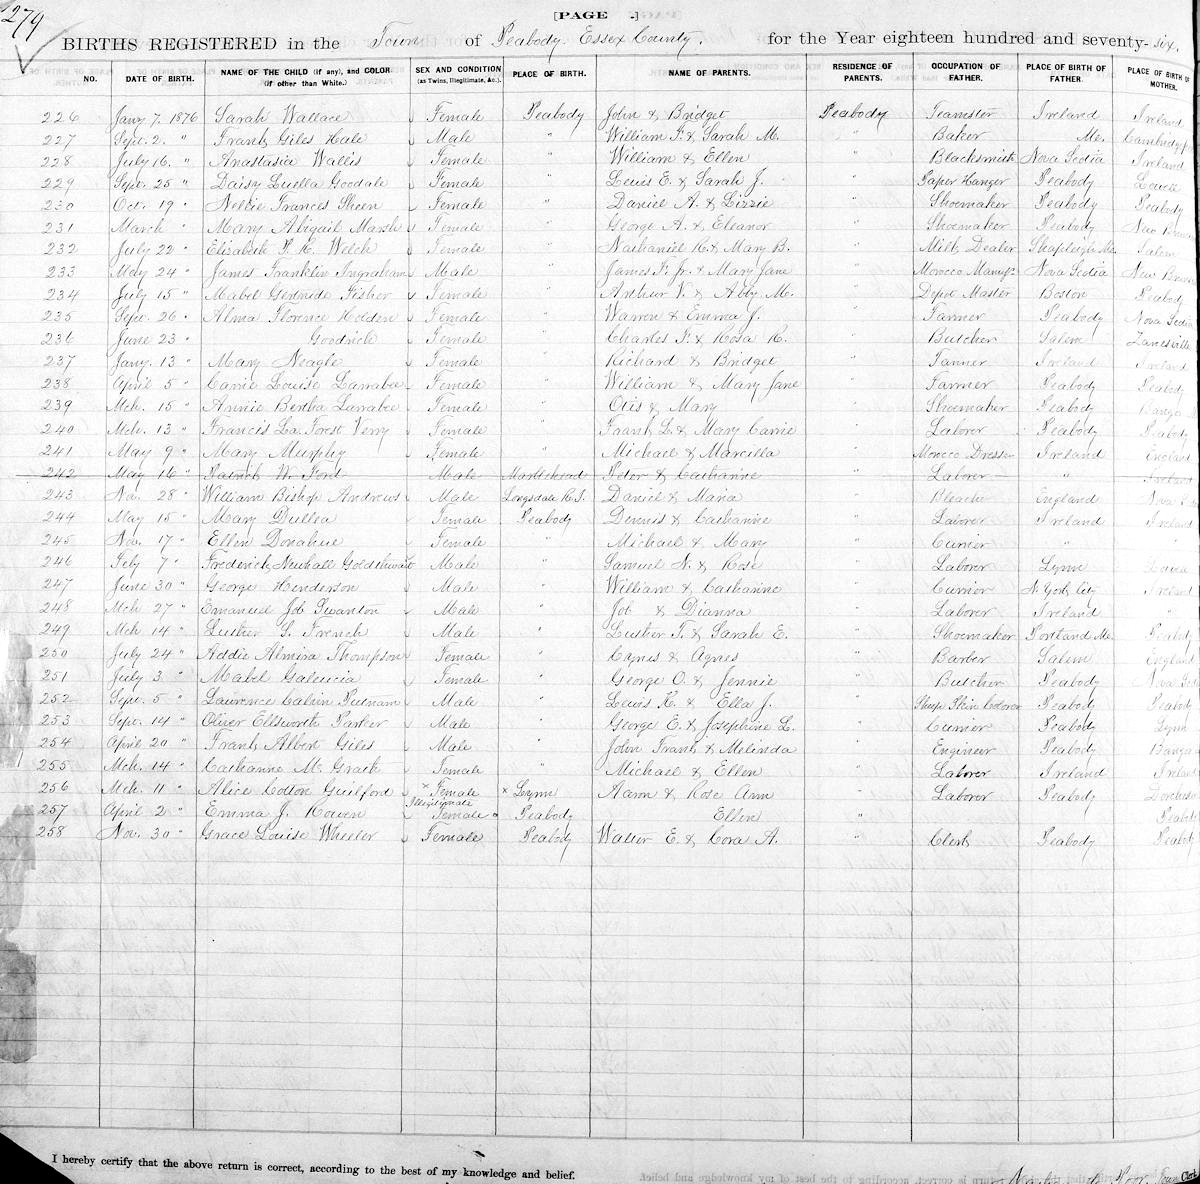 279
[PAGE .]
BIRTHS REGISTERED in the Town of Peabody Essex County. for the Year eighteen hundred and seventy-six.
NO. DATE OF BIRTH. NAME OF THE CHILD (if any), and COLOR (if other than White.) SEX AND CONDITION (as Twins, Illegitimate, &c.). PLACE OF BIRTH. NAME OF PARENTS. RESIDENCE OF PARENTS. OCCUPATION OF FATHER. PLACE OF BIRTH OF FATHER. PLACE OF BIRTH OF MOTHER.
226 Jany 7. 1876 Sarah Wallace Female Peabody John & Bridget Peabody Teamster Ireland Ireland
227 Sept. 2. " Frank Giles Hale Male " William F. & Sarah M. " Baker Me.
228 July 16. " Anastasia Wallis Female " William & Ellen " Blacksmith Nova Scotia Ireland
229 Sept. 25 " Daisy Luella Goodale Female " Lewis E. & Sarah J. " Paper Hanger Peabody Lowell
230 Oct. 19 " Nellie Frances Skeen Female " Daniel A. & Lizzie " Shoemaker Peabody Peabody
231 March " Mary Abigail Marsh Female " George A. & Eleanor " Shoemaker Peabody New
232 July 22 " Elizabeth P. H. Welch Female " Nathaniel H. & Mary B. " Milk Dealer Shapleigh Me. Salem
233 May 24 " James Franklin Ingraham Male " James F. Jr. & Mary Jane " Morocco Manuf. Nova Scotia New
234 July 15 " Mabel Gertrude Fisher Female " Arthur V. & Abby M. " Depot Master Boston Peabody
235 Sept. 26 " Alma Florence Holden Female " Warren & Emma J. " Farmer Peabody Nova Scotia
236 June 23 " Goodrich Female " Charles F. & Rosa R. " Butcher Salem Zanesville
237 Jany. 13 " Mary Neagle Female " Richard & Bridget " Tanner Ireland Ireland
238 April 5 " Carrie Louise Larrabee Female " William & Mary Jane " Farmer Peabody Peabody
239 Mch. 15 " Annie Bertha Larrabee Female " Otis & Mary " Shoemaker Peabody
240 Mch. 13 " Francis La Forest Verry Female " Frank L. & Mary Carrie " Laborer Peabody Peabody
241 May 9 " Mary Murphy Female " Michael & Marcella " Morocco Dresser Ireland England
242 May 16 " Patrick W. Ford Male Marblehead Peter & Catharine " Laborer " Ireland
243 No. 28 " William Bishop Andrews Male Longsdale R.I. Daniel & Maria " Bleacher England Nova
244 May 15 " Mary Dullea Female Peabody Dennis & Catharine " Laborer Ireland Ireland
245 Nov. 17 " Ellen Donahue Female " Michael & Mary " Currier " "
246 Feby 7 " Frederick Newhall Goldthwait Male " Samuel N. & Rose " Laborer Lynn
247 June 30 " George Henderson Male " William & Catharine " Currier N. York City Ireland
248 Mch 27 " Emanuel Job Swanton Male " Job & Dianna " Laborer Ireland
249 Mch 14 " Luther S. French Male " Luther T. & Sarah E. " Shoemaker Portland Me. Peabody
250 July 24 " Addie Almira Thompson Female " Cyrus & Agnes " Barber Salem England
251 July 3 " Mabel Galeucia Female " George O. & Jennie " Butcher Peabody Nova
252 Sept. 5 " Lawrence Calvin Putnam Male " Lewis H. & Ella J. " Sheep Skin Peabody Peabody
253 Sept. 14 " Oliver Ellsworth Parker Male " George E. & Josephine L. " Currier Peabody Lynn
254 April 20 " Frank Albert Giles Male " John Frank & Melinda " Engineer Peabody
255 Mch. 14 " Catharine Mc Grath Female " Michael & Ellen " Laborer Ireland Ireland
256 Mch. 11 " Alice Colton Guilford × Female × Lynn Aaron & Rose Ann " Laborer Peabody Dorchester
257 April 2 " Emma J. Howen Illegitimate Female Peabody Ellen " Peabody
258 Nov. 30 " Grace Louise Wheeler Female Peabody Walter E. & Cora A. " Clerk Peabody Peabody
I hereby certify that the above return is correct, according to the best of my knowledge and belief.
Poor, Town Clerk